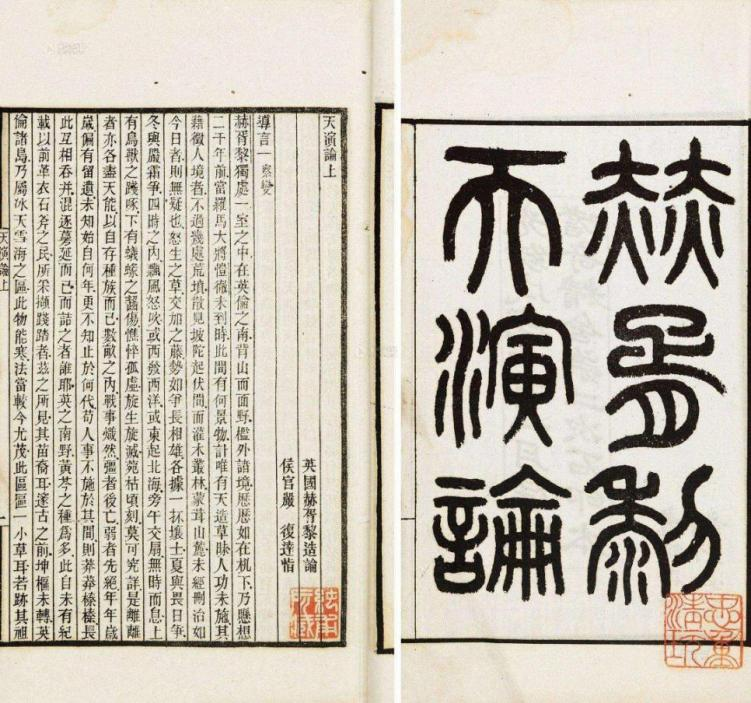 赫胥黎
天演論
天演論上
英國赫胥黎造論
侯官嚴 復達恉
導言一 察變
赫胥黎獨處一室之中在英倫之南背山而面野檻外諸境歷歷如在机下乃懸想
二千年前當羅馬大將愷徹未到時此間有何景物計唯有天造草昧人功未施其
藉徵人境者不過幾處荒墳散見坡陀起伏間而灌木叢林蒙茸山麓未經刪治如
今日者則無疑也怒生之草交加之藤勢如爭長相雄各據一抔壤土夏與畏日爭
冬與嚴霜爭四時之內飄風怒吹或西發西洋或東起北海旁午交扇無時而息上
有鳥獸之踐啄下有蟻蝝之齧傷憔悴孤虛旋生旋滅菀枯頃刻莫可究詳是離離
者亦各盡天能以自存種族而已數畝之內戰事熾然彊者後亡弱者先絕年年歲
歲偏有留遺未知始自何年更不知止於何代苟人事不施於其間則莽莽榛榛長
此互相吞并混逐蔓延而已而詰之者誰耶英之南野黃芩之種為多此自未有紀
載以前革衣石斧之民所采擷踐踏者茲之所見其苗裔耳邃古之前坤樞未轉英
倫諸島乃屬冰天雪海之區此物能寒法當較今尤茂此區區一小草耳若跡其祖
天演論上
一